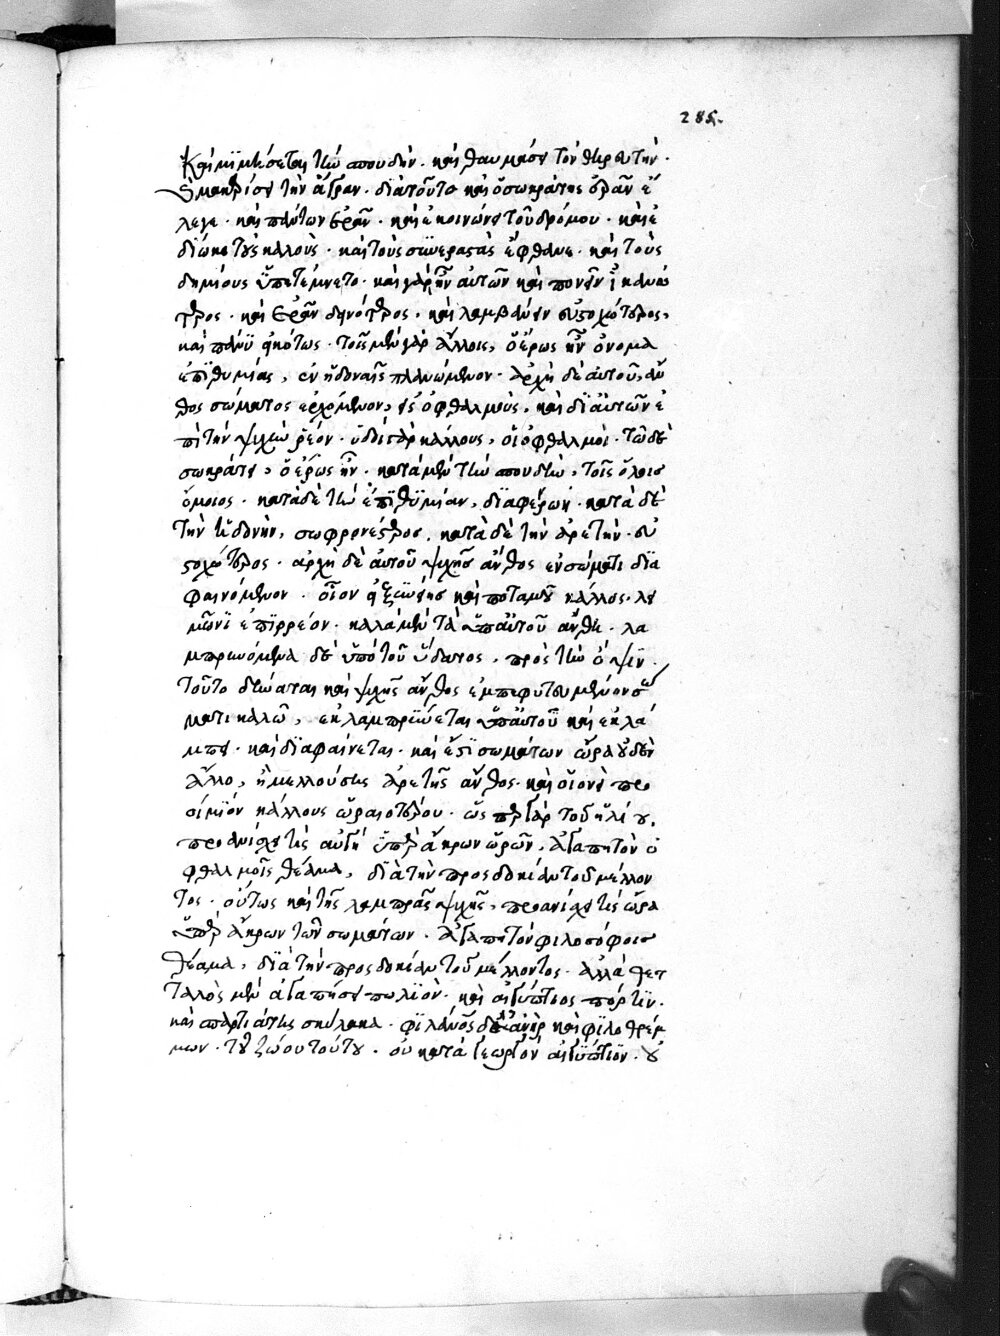 285.
καὶ μιμήσεται τὴν σπουδήν. καὶ θαυμάσει τὸν θηρευτὴν.
ἢ μακαρίσει τὴν ἄγραν. διὰ τοῦτο καὶ ὁ σωκράτης ὁρᾶν ἔ
λεγε. καὶ πάντων ἐρᾶν. καὶ ἐκοινώνει τοῦ δρόμου. καὶ ἐ
δίωκε τοὺς καλοὺς. καὶ τοὺς συνεραστὰς ἔφθανε. καὶ τοὺς
δημίους ὑπετέμνετο. καὶ γὰρ ἦν αὐτῶν καὶ πονεῖν ἱκανώ
τερος. καὶ ἐρᾶν δεινότερος, καὶ λαμβάνειν εὐστοχώτερος,
καὶ πάνυ εἰκότως. τοῖς μὲν γὰρ ἄλλοις, ὁ ἔρως ἦν ὄνομα
ἐπιθυμίας, ἐν ἡδοναῖς πλανώμενον. ἀρχὴ δὲ αὐτοῦ, ἄν
θος σώματος ἐρχόμενον, ἐς ὀφθαλμοὺς, καὶ δι αὐτῶν ἐ
πὶ τὴν ψυχὴν ῥέον. ὁδοὶ γὰρ κάλλους, οἱ ὀφθαλμοί. τῶ δὲ
σωκράτει, ὁ ἔρως ἦν. κατὰ μὲν τὴν σπουδὴν, τοῖς ἄλλοις
ὅμοιος. κατὰ δὲ τὴν ἐπιθυμίαν, διαφέρων. κατὰ δὲ
τὴν ἡδονὴν, σωφρονέστερος. κατὰ δὲ τὴν ἀρετὴν. εὐ
στοχώτερος. ἀρχὴ δὲ αὐτοῦ ψυχῆς ἄνθος ἐν σώματι δια
φαινόμενον. οἷον εἰ ξυνείης καὶ ποταμοῦ κάλλος. λει
μῶνι ἐπιρρέον. καλὰ μὲν τὰ ὑπ αὐτοῦ ἄνθη. λα
μπρυνόμενα δὲ ὑπὸ τοῦ ὕδατος, πρὸς τὴν ὄψιν.
τοῦτο δύναται καὶ ψυχῆς ἄνθος ἐμπεφυτευμένον σώ
ματι καλῶ, ἐκλαμπρύνεται ὑπ αὐτοῦ καὶ ἐκλά
μπει. καὶ διαφαίνεται. καὶ ἔστι σωμάτων ὥρα οὐδὲν
ἄλλο, ἢ μελλούσης ἀρετῆς ἄνθος. καὶ οἱονεὶ προ
οίμιον κάλλους ὡραιοτέρου. ὡς περ γὰρ τοῦ ἡλίου.
προανίσχει τὶς αὐγὴ ὑπὲρ ἄκρων ὀρῶν, ἀγαπητὸν ὀ
φθαλμοῖς θέαμα, διὰ τὴν προσδοκίαν τοῦ μέλλον
τος. οὕτως καὶ τῆς λαμπρᾶς ψυχῆς, προανίσχει τὶς ὥρα
ὑπὲρ ἄκρων τῶν σωμάτων. ἀγαπητὸν φιλοσόφοις
θέαμα, διὰ τὴν προσδοκίαν τοῦ μέλλοντος. ἀλλὰ θετ
ταλὸς μὲν ἀγαπήσει πωλίον. καὶ αἰγύπτιος πόρτιν.
καὶ σπαρτιάτης σκύλακα. φιλάνος δὲ ἀνὴρ καὶ φιλοθρέμ
μων. τοῦ ζώου τούτου. οὐ κατὰ γεωργὸν αἰγύπτιον. οὐ